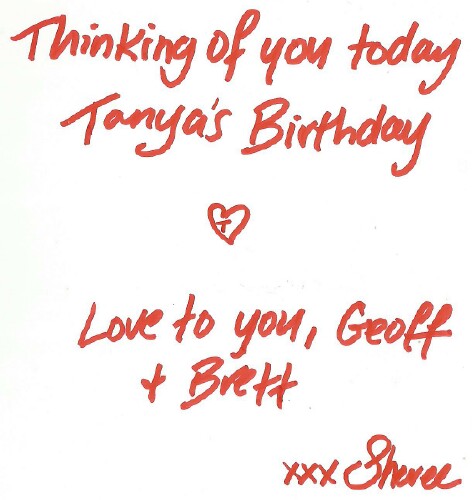 Thinking of you today
Tanya's Birthday
T
Love to you, Geoff
+ Brett
xxx Sheree